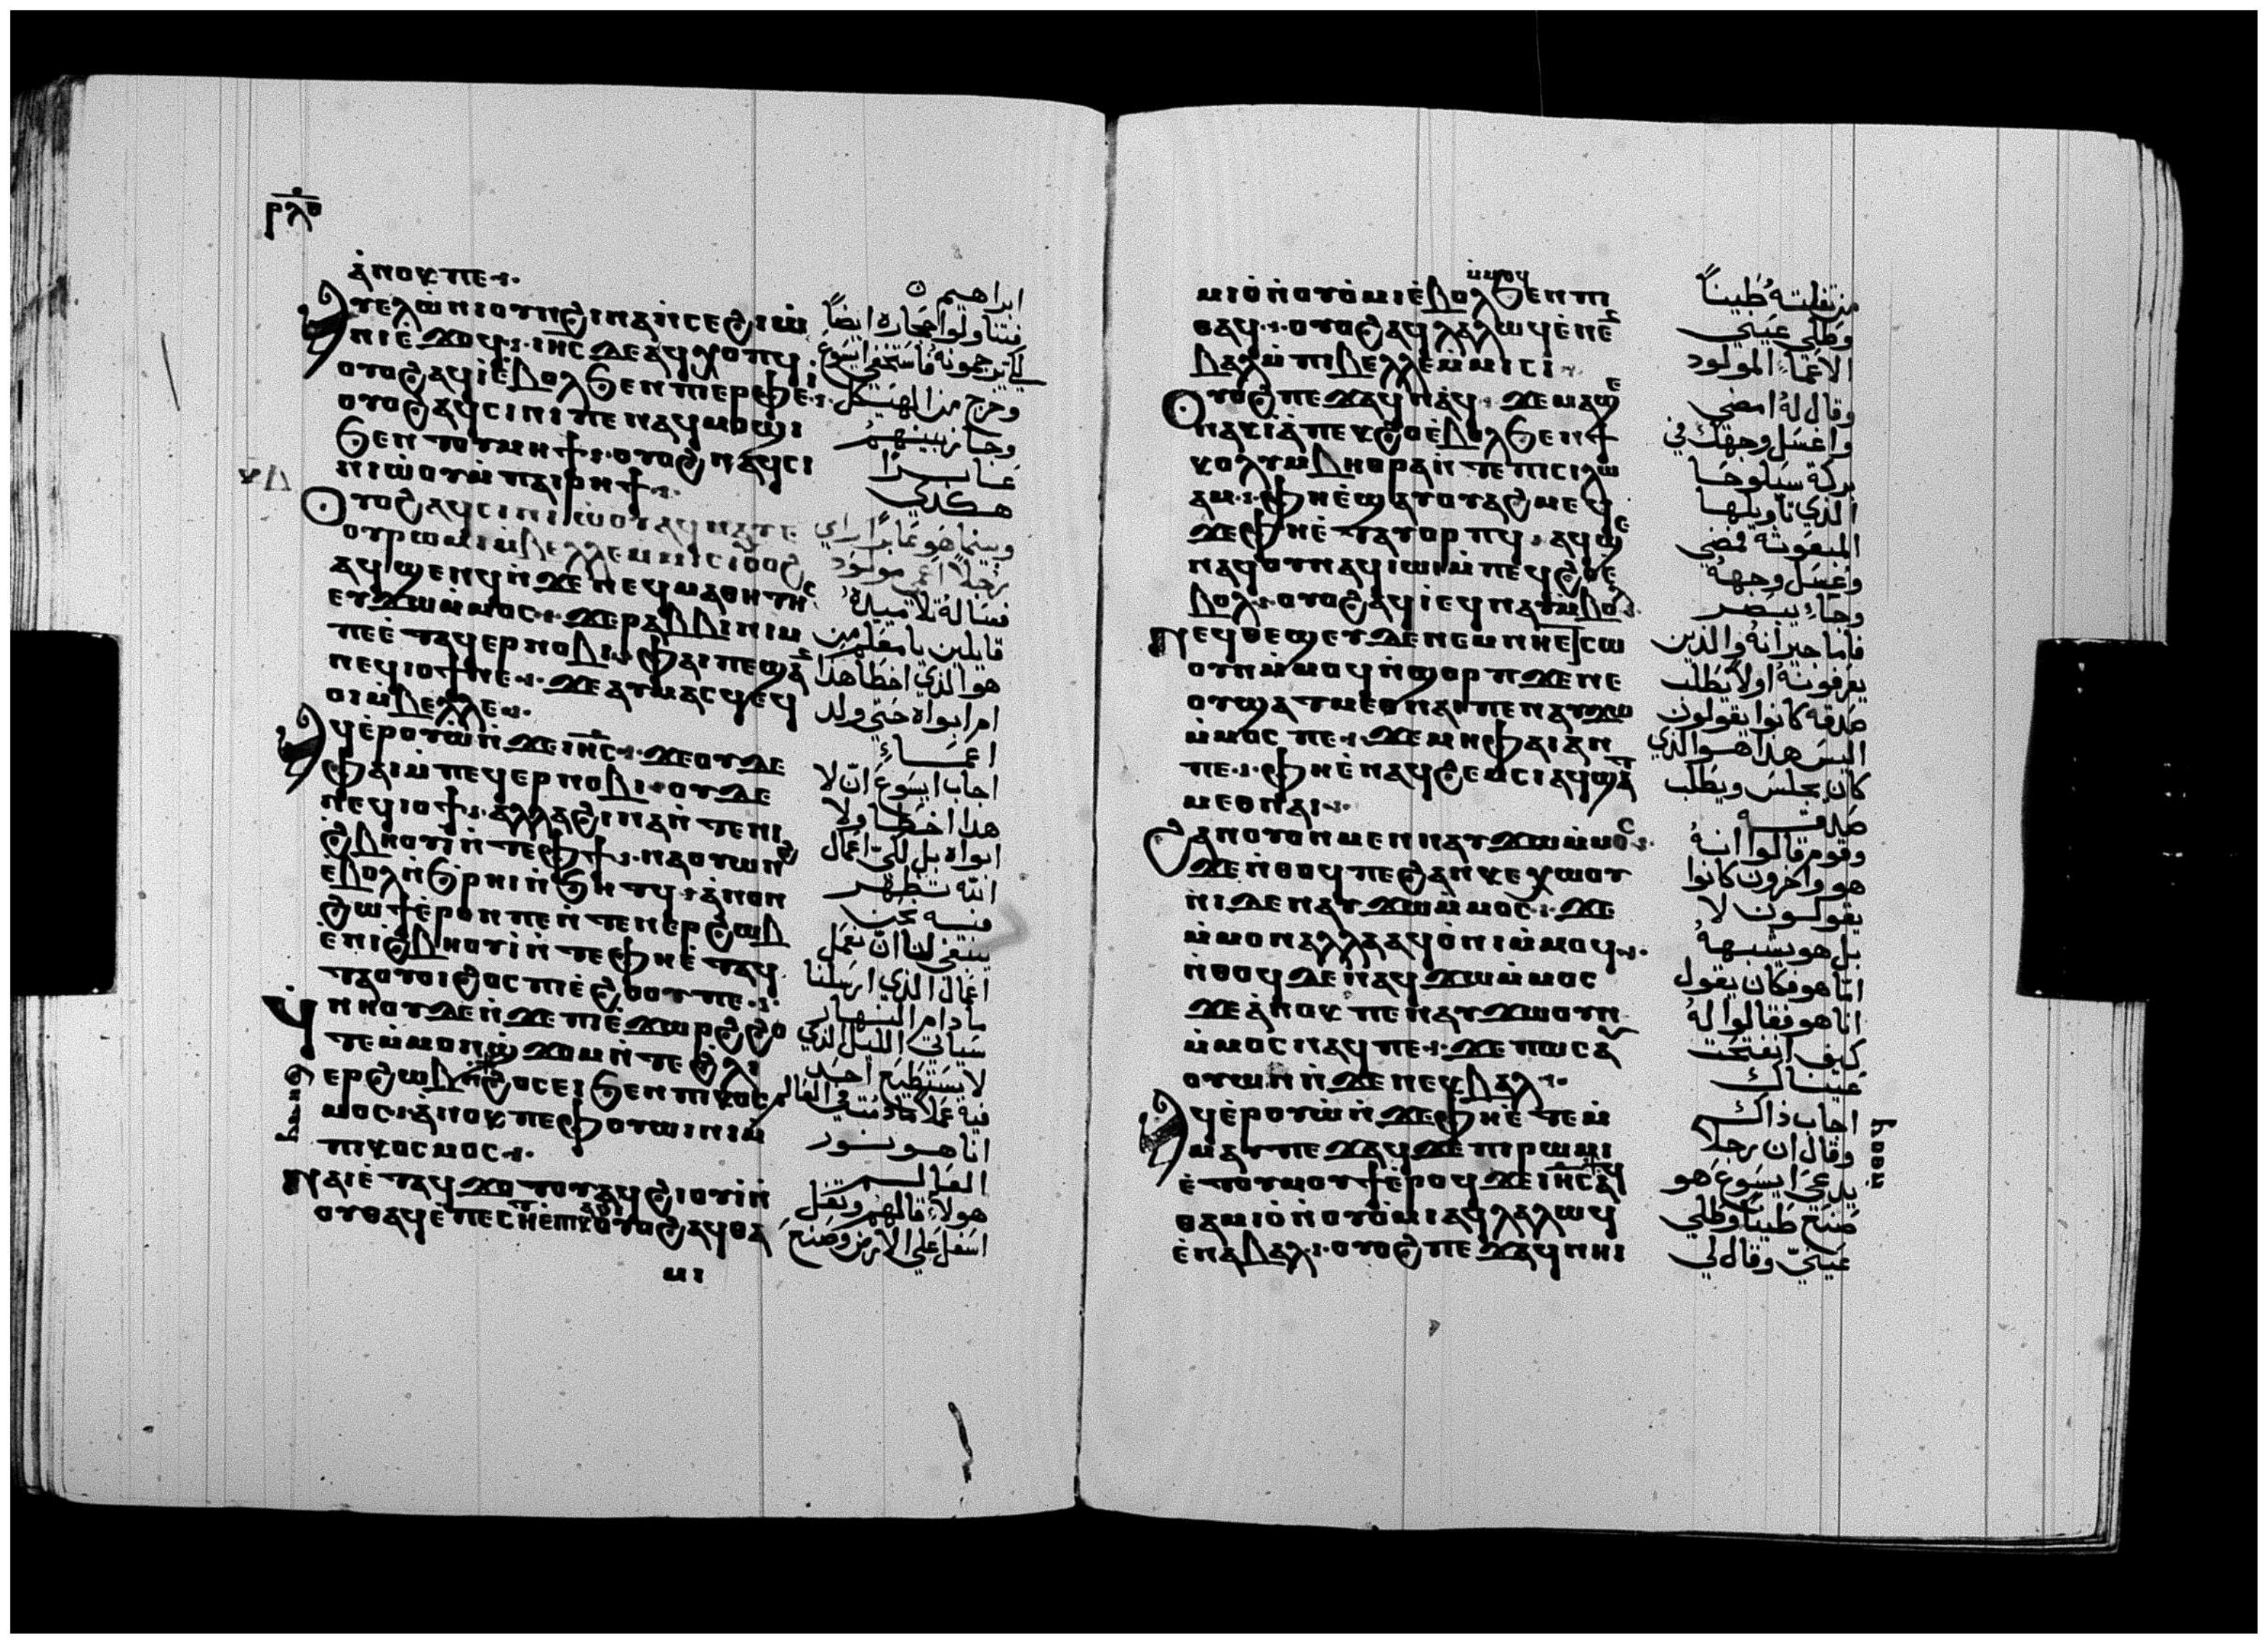 ⲣⲗⲑ
ⲁ̀ⲛⲟⲕ ⲡⲉ
ⲁⲩⲉⲗⲱ̀ⲛⲓ ⲟⲩⲛ ϩⲓⲛⲁ ⲛ̀ⲥⲉϩⲓⲱ̀
ⲛⲓ ⲉ̀ϫⲱϥ ⲓⲏⲥ ⲇⲉ ⲁϥⲭⲟⲡϥ
ⲟⲩⲟϩ ⲁϥⲓ̀ ⲉ̀ⲃⲟⲗ ϧⲉⲛ ⲡⲓⲉⲣⲫⲉⲓ
ⲟⲩⲟϩ ⲁϥⲥⲓⲛⲓ ⲡⲉ ⲛⲁϥⲙⲟϣⲓ
ϧⲉⲛ ⲧⲟⲩⲙⲏϯ ⲟⲩⲟϩ ⲛⲁϥⲥⲓ
ⲛⲓⲱⲟⲩ ⲙ̀ⲡⲁⲓⲣⲏϯ
ⲟⲩⲟϩ ⲁϥⲥⲓⲛⲓⲱ̀ⲟⲩ ⲁϥⲛⲁⲩⲉ
ⲟⲩⲣⲱⲙⲓ ⲙ̀ⲃⲉⲗⲗⲉ ⲙ̀ⲙⲓⲥⲓ ⲟⲩⲟϩ
ⲁϥϣⲉⲛϥ ⲛ̀ϫⲉ ⲛⲉϥⲙⲁⲑⲏⲧⲏⲥ
ⲉⲩϫⲱ ⲙ̀ⲙⲟⲥ ϫⲉ ⲣⲁⲃⲃⲓ ⲛⲓⲙ
ⲡⲉ ⲉ̀ⲧⲁϥⲉⲣⲛⲟⲃⲓ ⲫⲁⲓ ⲡⲉ ϣⲁⲛ
ⲛⲉϥⲓⲟϯ ⲛⲉ ϫⲉ ⲁⲩⲙⲁⲥϥ ⲉϥ
ⲟⲓ ⲙ̀ⲃⲉⲗⲗⲉ
ⲁϥⲉ̀ⲣⲟⲩⲱ̀ ⲛ̀ϫⲉ ⲓⲏⲥ ϫⲉ ⲟⲩⲇⲉ
ⲫⲁⲓ ⲙ̀ⲡⲉϥⲉⲣⲛⲟⲃⲓ ⲟⲩⲇⲉ
ⲛⲉϥⲓⲟϯ ⲁⲗⲗⲁ ϩⲓⲛⲁ ⲛ̀ⲧⲉ ⲛⲓ
ϩ̀ⲃⲏⲟⲩⲓ̀ ⲛ̀ⲧⲉ ⲫϯ ⲛⲁⲟⲩⲱⲛϩ
ⲉ̀ⲃⲟⲗ ⲛ̀ϧⲣⲏⲓ ⲛ̀ϧⲏⲧϥ ⲁ̀ⲛⲟⲛ
ϩⲱϯ ⲉ̀ⲣⲟⲛ ⲡⲉ ⲛ̀ⲧⲉⲛⲉⲣϩⲱⲃ
ⲉ̀ⲛⲓϩ̀ⲃⲏⲟⲩⲓ̀ ⲛ̀ⲧⲉ ⲫⲏⲉ̀ⲧⲁϥ
ⲧⲁⲟⲩⲟⲓ ϩⲟⲥ ⲡⲓⲉ̀ϩⲟⲟⲩ ⲡⲉ
ϥ̀ⲛⲏⲟⲩ ⲇⲉ ⲛ̀ϫⲉ ⲡⲓⲉ̀ϫⲱⲣϩ ϩⲟ
ⲧⲉ ⲙ̀ⲙⲟⲛϣϫⲟⲙ ⲛ̀ⲧⲉ ϩ̀ⲗⲓ
ⲉⲣϩⲱⲃ ⲛ̀ϧⲏⲧϥ ϩⲟⲥ ⲉⲓ ϧⲉⲛ ⲡⲓⲕⲟⲥ
ⲙⲟⲥ ⲁ̀ⲛⲟⲕ ⲡⲉ ⲫⲟⲩⲱⲓⲛⲓ ⲙ̀
ⲡⲓⲕⲟⲥⲙⲟⲥ
ⲛⲁⲓ ⲉ̀ⲧⲁϥϫⲟⲧⲟⲩ ⲁϥϩⲓⲟⲩⲓ̀ ⲛ̀
ⲟⲩⲑⲁϥ ⲉ̀ⲡⲉⲥⲏⲧ ⲉ̀ⲡⲓⲕⲁϩⲓ ⲟⲩⲟϩ ⲁϥⲑⲁ
ⲙⲓ
ابراهيم
فتناولوا حجارة ايضاً
لكي يرجمونه فاستخفي ايسوع
وخرج من الهيكل
وجاز بينهم
عابرًا
هكذي
وبينما هو عابرًا راي
رجلاً اعمي مولود
فساله تلاميده
قايلين يا معلم من
هو الذي اخطا هذا
ام ابواه حتي ولد
اعماء
اجاب ايسوع ان لا
هدا اخطا ولا
ابواه بل لكي اعمال
الله تظهر
فيه نحن
ينبغي لنا ان نعمل
اعمال الذي ارسلنا
مادام النهار
سياتي الليل الذي
لا يستطيع احد
فيه عملا مادمت في العالم
انا هو نور
العالم
هولاء قالهم وتفل
اسفل علي الارض وصنع
ⲙ̀ⲙⲟϥ
ⲙⲓⲟ̀ ⲛ̀ⲟⲩⲟ̀ⲙⲓ ⲉ̀ⲃⲟⲗ ϧⲉⲛ ⲡⲓ
ⲑⲁϥ ⲟⲩⲟϩ ⲁϥⲗⲁⲗⲱϥ ⲉ̀ⲛⲉⲛ
ⲃⲁⲗ ⲙ̀ⲡⲓⲃⲉⲗⲗⲉ ⲙ̀ⲙⲓⲥⲓ
ⲟⲩⲟϩ ⲡⲉϫⲁϥ ⲛⲁϥ ϫⲉ ⲙⲁϣⲉ
ⲛⲁⲕ ⲓⲁ̀ ⲡⲉⲕϩⲟ ⲉ̀ⲃⲟⲗ ϧⲉⲛ ϯ
ⲕⲟⲗⲩⲙⲃⲏⲑⲣⲁ ⲛ̀ⲧⲉ ⲡⲓⲥⲓⲗⲱ
ⲁⲙ ⲫⲏⲉ̀ϣⲁⲩⲟⲩⲁϩⲙⲉϥ
ϫⲉ ⲫⲏⲉ̀ⲧⲁⲩⲟⲣⲡϥ ⲁϥϣⲉ
ⲛⲁϥ ⲟⲩⲛ ⲁϥⲓⲱⲓ ⲙ̀ⲡⲉϥϩⲟ ⲉ̀
ⲃⲟⲗ ⲟⲩⲟϩ ⲁϥⲓ̀ ⲉϥⲛⲁⲩ ⲙ̀ⲃⲟⲗ
ⲛⲉϥⲑⲉϣⲉⲩ ⲇⲉ ⲛⲉⲙ ⲛⲏⲉ̀ⲥⲱ
ⲟⲩⲛ ⲙ̀ⲙⲟϥ ⲛ̀ϣⲟⲣⲡ ϫⲉ ⲛⲉ
ⲟⲩϣⲁⲧⲙⲉⲑⲛⲁⲓ ⲡⲉ ⲛⲁⲩϫⲱ
ⲙ̀ⲙⲟⲥ ⲡⲉ ϫⲉ ⲙⲏ ⲫⲁⲓ ⲁⲛ
ⲡⲉ ⲫⲏⲉ̀ⲛⲁϥϩⲉⲙⲥⲓ ⲁϥϣⲁⲧ
ⲙⲉⲑⲛⲁⲓ
ϩⲁⲛⲟⲩⲟⲛ ⲙⲉⲛ ⲛⲁⲩϫⲱ ⲙ̀ⲙⲟⲥ
ϫⲉ ⲛ̀ⲑⲟϥ ⲡⲉ ϩⲁⲛⲕⲉⲭⲱⲟⲩ
ⲛⲓ ⲇⲉ ⲛⲁⲩϫⲱ ⲙ̀ⲙⲟⲥ ϫⲉ
ⲙ̀ⲙⲟⲛ ⲁⲗⲗⲁ ⲁϥⲟ̀ⲛⲓ ⲙ̀ⲙⲟϥ
ⲛ̀ⲑⲟϥ ⲇⲉ ⲛⲁϥϫⲱ ⲙ̀ⲙⲟⲥ
ϫⲉ ⲁ̀ⲛⲟⲕ ⲡⲉ ⲛⲁⲩϫⲱ ⲟⲩⲛ
ⲙ̀ⲙⲟⲥ ⲛⲁϥ ⲡⲉ ϫⲉ ⲡⲱⲥ ⲁⲩ
ⲟⲩⲱⲛ ⲛ̀ϫⲉ ⲛⲉⲕⲃⲁⲗ
ⲁϥⲉ̀ⲣⲟⲩⲱ̀ ⲛ̀ϫⲉ ⲫⲏⲉ̀ⲧⲉⲙ
ⲙⲁⲩ ⲡⲉϫⲁϥ ϫⲉ ⲡⲓⲣⲱⲙⲓ
ⲉ̀ⲧⲟⲩⲙⲟⲩϯ ⲉ̀ⲣⲟϥ ϫⲉ ⲓⲏⲥ ⲁϥ
ⲑⲁⲙⲓⲟ̀ ⲛ̀ⲟⲩⲟ̀ⲙⲓ ⲁϥⲗⲁⲗⲱϥ
ⲉ̀ⲛⲁⲃⲁⲗ ⲟⲩⲟϩ ⲡⲉϫⲁϥ ⲛⲏⲓ
من تفلته طيناً
وطلي عيني
الاعماء المولود
وقال له امضي
واغسل وجهك في
بركة سيلوحا
الذي تاويلها
المبعوثة فمضي
وغسل وجهه
وجاء يبصر
فاما جيرانه والدين
يعرفونه اولا يطلب
صدقه كانوا يقولون
اليس هدا هو الذي
كان يجلس ويطلب
صدقه
وقوم قالوا انه
هو واخرون كانوا
يقولون لا
بل هو يشبهه
اما هو فكان يقول
انا هو فقالوا له
كيف انفتحت
عيناك
اجاب ذاك
وقال ان رجلا
يدعي ايسوع هو
صنع طيناً وطلي
عينيّ وقال لي